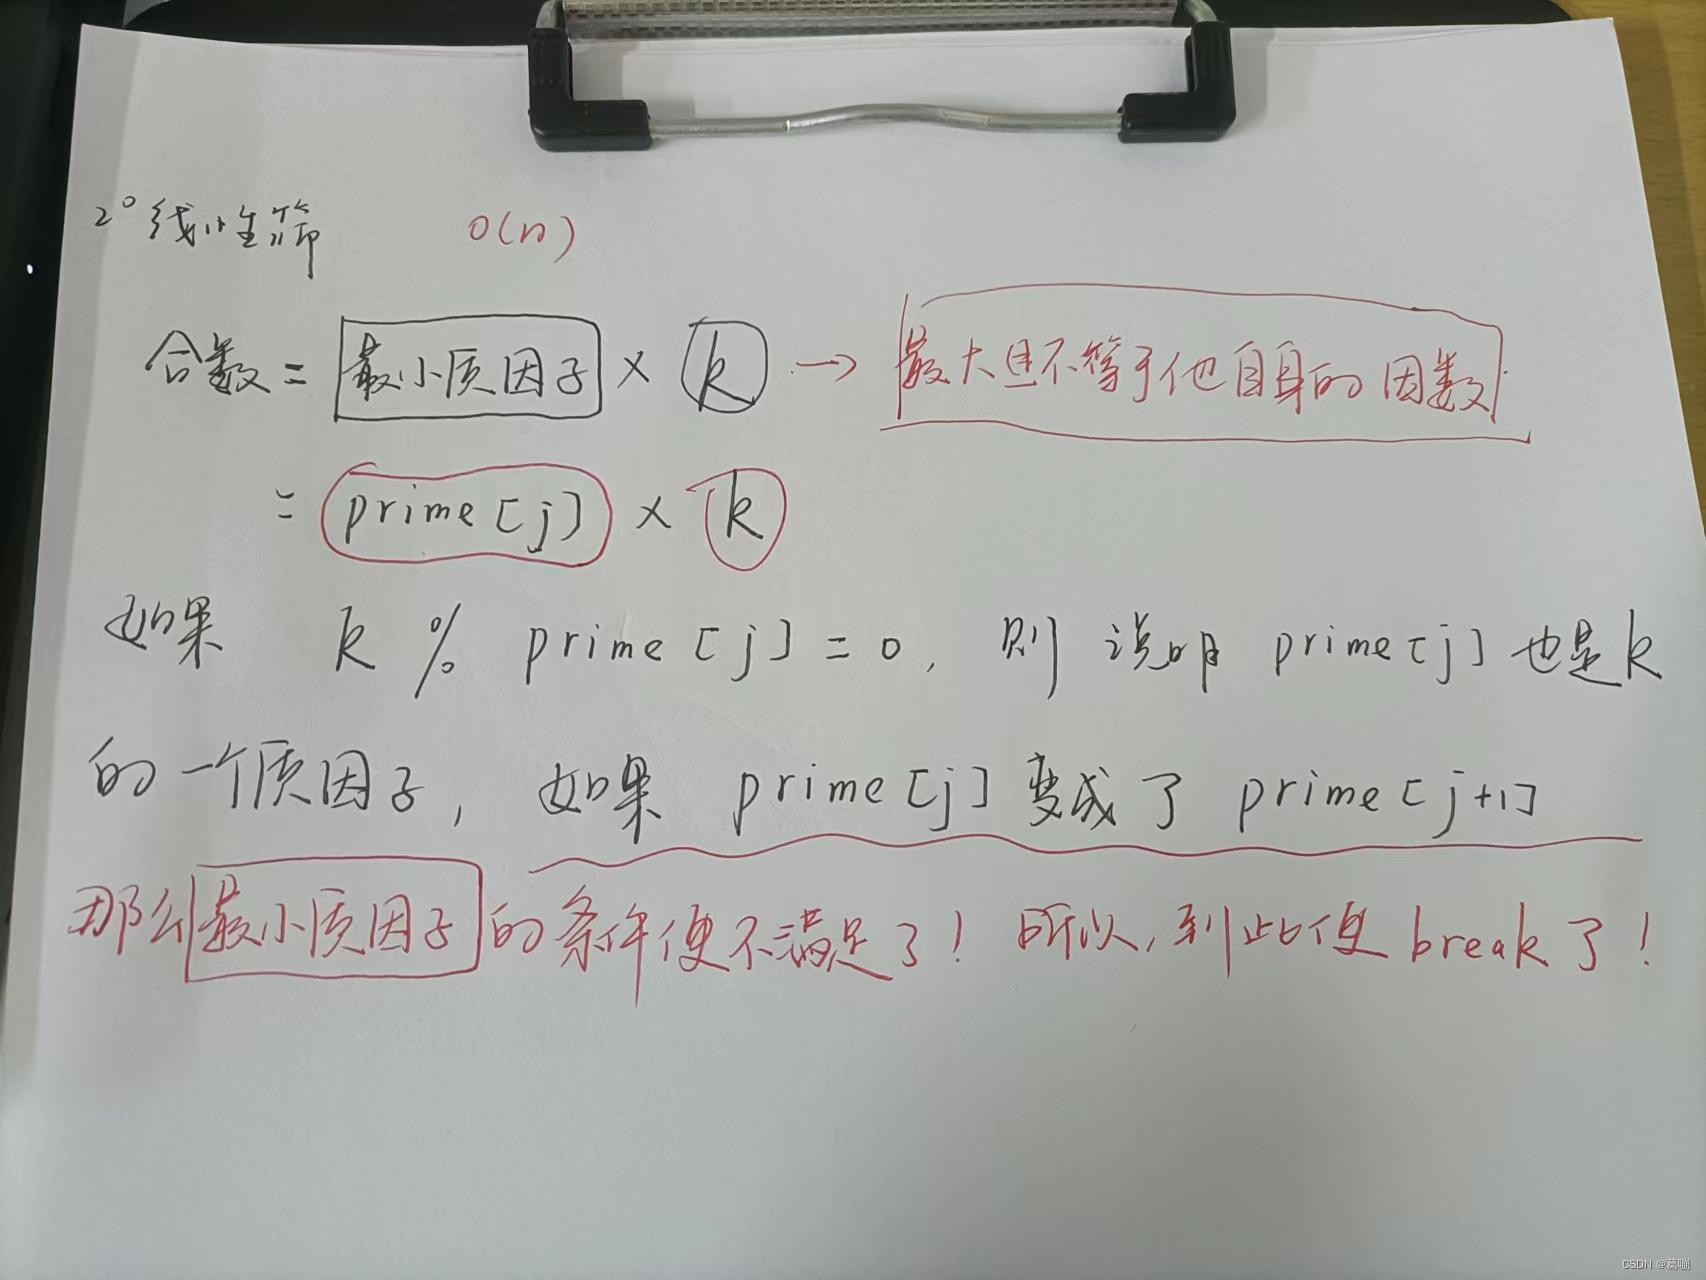 2° 线性筛 O(n)
合数 = 最小质因子 × k → 最大且不等于他自身的因数
= prime[j] × k
如果 k % prime[j] = 0, 则说明 prime[j] 也是 k
的一个质因子, 如果 prime[j] 变成了 prime[j+1]
那么最小质因子的条件便不满足了! 所以, 到此便 break 了!
CSDN @葛嘣